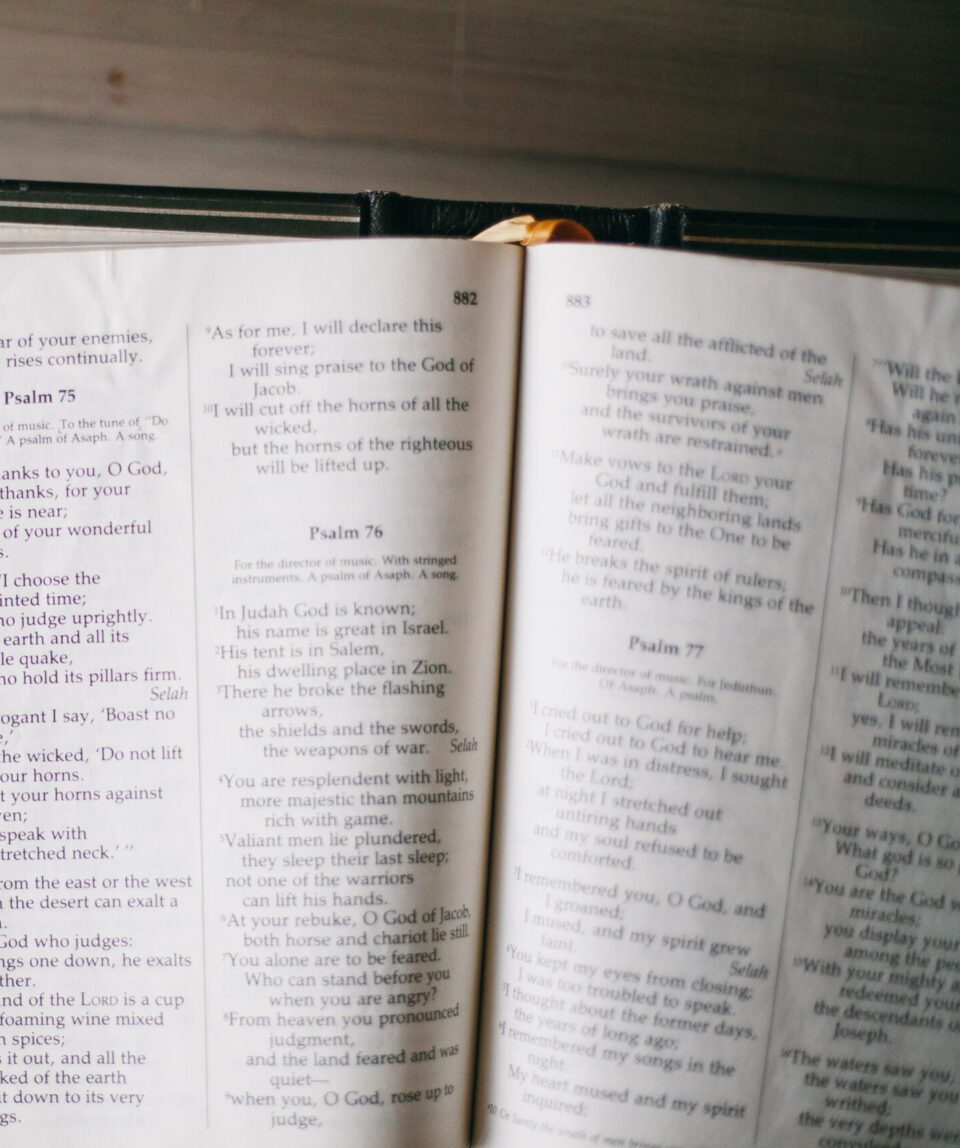 882
of your enemies,
rises continually.
Psalm 75
of music. To the tune of "Do
A psalm of Asaph. A song.
to you, O God,
thanks, for your
is near;
of your wonderful
"I choose the
time;
judge uprightly.
earth and all its
quake,
hold its pillars firm.
Selah
I say, 'Boast no
the wicked, 'Do not lift
your horns.
your horns against
speak with
neck.' "
from the east or the west
the desert can exalt a
God who judges:
one down, he exalts
hand of the LORD is a cup
foaming wine mixed
spices;
it out, and all the
of the earth
it down to its very
⁹As for me, I will declare this
forever;
I will sing praise to the God of
Jacob.
¹⁰I will cut off the horns of all the
wicked,
but the horns of the righteous
will be lifted up.
Psalm 76
For the director of music. With stringed
instruments. A psalm of Asaph. A song.
¹In Judah God is known;
his name is great in Israel.
²His tent is in Salem,
his dwelling place in Zion.
³There he broke the flashing
arrows,
the shields and the swords,
the weapons of war. Selah
⁴You are resplendent with light,
more majestic than mountains
rich with game.
⁵Valiant men lie plundered,
they sleep their last sleep;
not one of the warriors
can lift his hands.
⁶At your rebuke, O God of Jacob,
both horse and chariot lie still.
⁷You alone are to be feared.
Who can stand before you
when you are angry?
⁸From heaven you pronounced
judgment,
and the land feared and was
quiet—
⁹when you, O God, rose up to
judge,
883
to save all the afflicted of the
land. Selah
¹⁰Surely your wrath against men
brings you praise,
and the survivors of your
wrath are restrained.
¹¹Make vows to the LORD your
God and fulfill them;
let all the neighboring lands
bring gifts to the One to be
feared.
¹²He breaks the spirit of rulers;
he is feared by the kings of the
earth.
Psalm 77
For the director of music. For Jeduthun.
Of Asaph. A psalm.
¹I cried out to God for help;
I cried out to God to hear me.
²When I was in distress, I sought
the Lord;
at night I stretched out
untiring hands
and my soul refused to be
comforted.
³I remembered you, O God, and
I groaned;
I mused, and my spirit grew
faint. Selah
⁴You kept my eyes from closing;
I was too troubled to speak.
⁵I thought about the former days,
the years of long ago;
⁶I remembered my songs in the
night.
My heart mused and my spirit
inquired:
10 Or Surely the wrath of men brings
⁷"Will the
Will he
again
⁸Has his
Has his
time?
⁹Has God
Has he in
¹⁰Then I
appeal:
the years of
the Most
¹¹I will
LORD;
yes, I will
miracles of
¹²I will meditate
and consider
deeds.
¹³Your ways, O
What god is so
God?
¹⁴You are the God
miracles;
you display your
among the
¹⁵With your mighty
redeemed your
the descendants
Joseph.
¹⁶The waters saw you,
the waters saw you
writhed;
the very depths